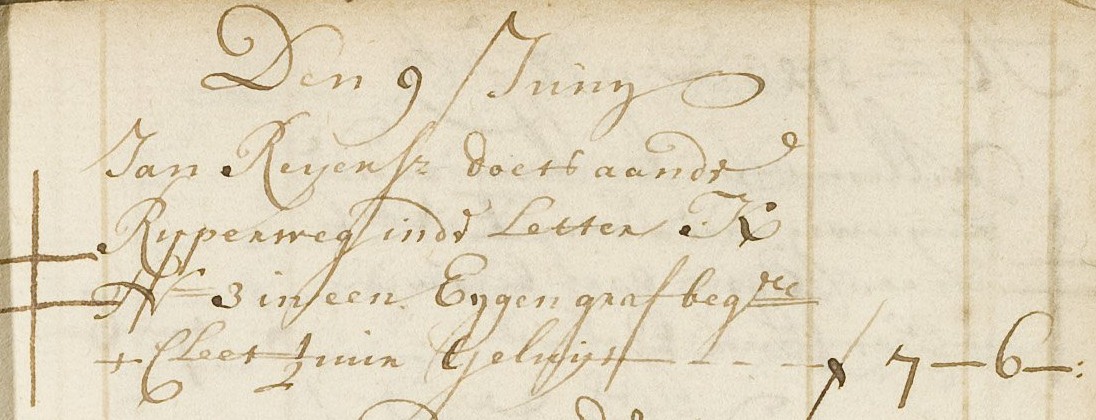 Den 9 Juny
Jan Reyersz doets aande
Rypenweg inde Letter K
N 3 in een Eygen graf begr
t Cleet ½ uur Geluyt - - - - 7 - 6 - :